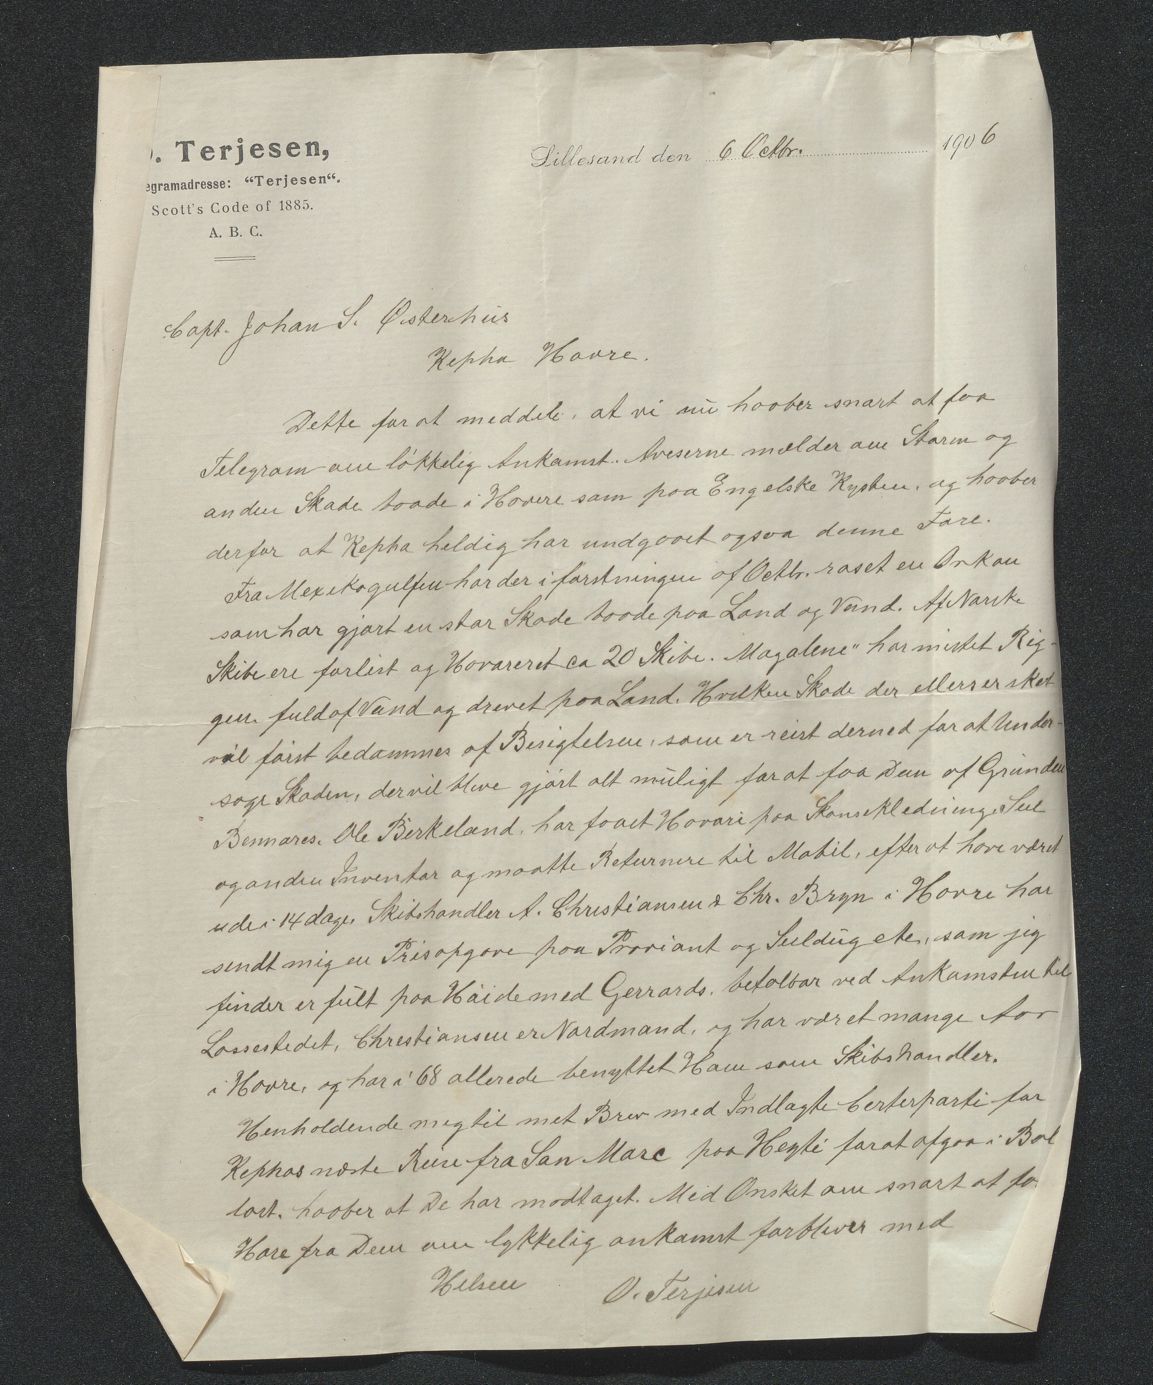 O. Terjesen,
egramadresse: “Terjesen“.
Scott's Code of 1885.
A. B. C.
Lillesand den 6 Octbr. 1906
Capt. Johan S. Østerhus
Kepha Havre.
Dette for at meddele, at vi nu haaber snart at faa
Telegram om løkkelig Ankomst. Aveserne mælder om Storm og
anden Skade baade i Havre som paa Engelske Kysten, og haaber
derfor at Kepha heldig har undgaaet ogsaa denne Fare.
Fra Mexekogulfen har der i forstningen af Octbr. raset en Orkan
som har gjort en stor Skade baade paa Land og Vand. Af Norske
Skibe ere forlist og Havareret ca 20 Skibe. Magalene" har mistet Rig-
gen, fuld af Vand og drevet paa Land. Hvilken Skade der ellers er sket
vil først bedømmes af Besigtelsen, som er reist derned for at Under-
søge Skaden, der vil blive gjørt alt muligt for at faa Dem af Grunden
Bennares. Ole Birkeland, har faaet Havari paa Skansekledning, Seil
og anden Inventar og maatte Returnere til Mobil, efter at have været
ude i 14 dage. Skibshandler A. Christiansen & Chr. Bryn i Havre har
sendt mig en Prisopgave paa Proviant og Seildug etc, som jeg
finder er fult paa Høide med Gerrards, betalbar ved Ankomsten til
Lossestedet, Christiansen er Nordmand, og har været mange Aar
i Havre, og har i 68 allerede benyttet Ham som Skibshandler.
Henholdende mig til mit Brev med Indlagte Certerparti for
Kephas næste Reise fra San Marc paa Heyti for at afgaa i Bal
last, haaber at De har modtaget. Med Ønsket om snart at fo
Høre fra Dem om lykkelig ankomst forbliver med
Hilsen O. Terjesen